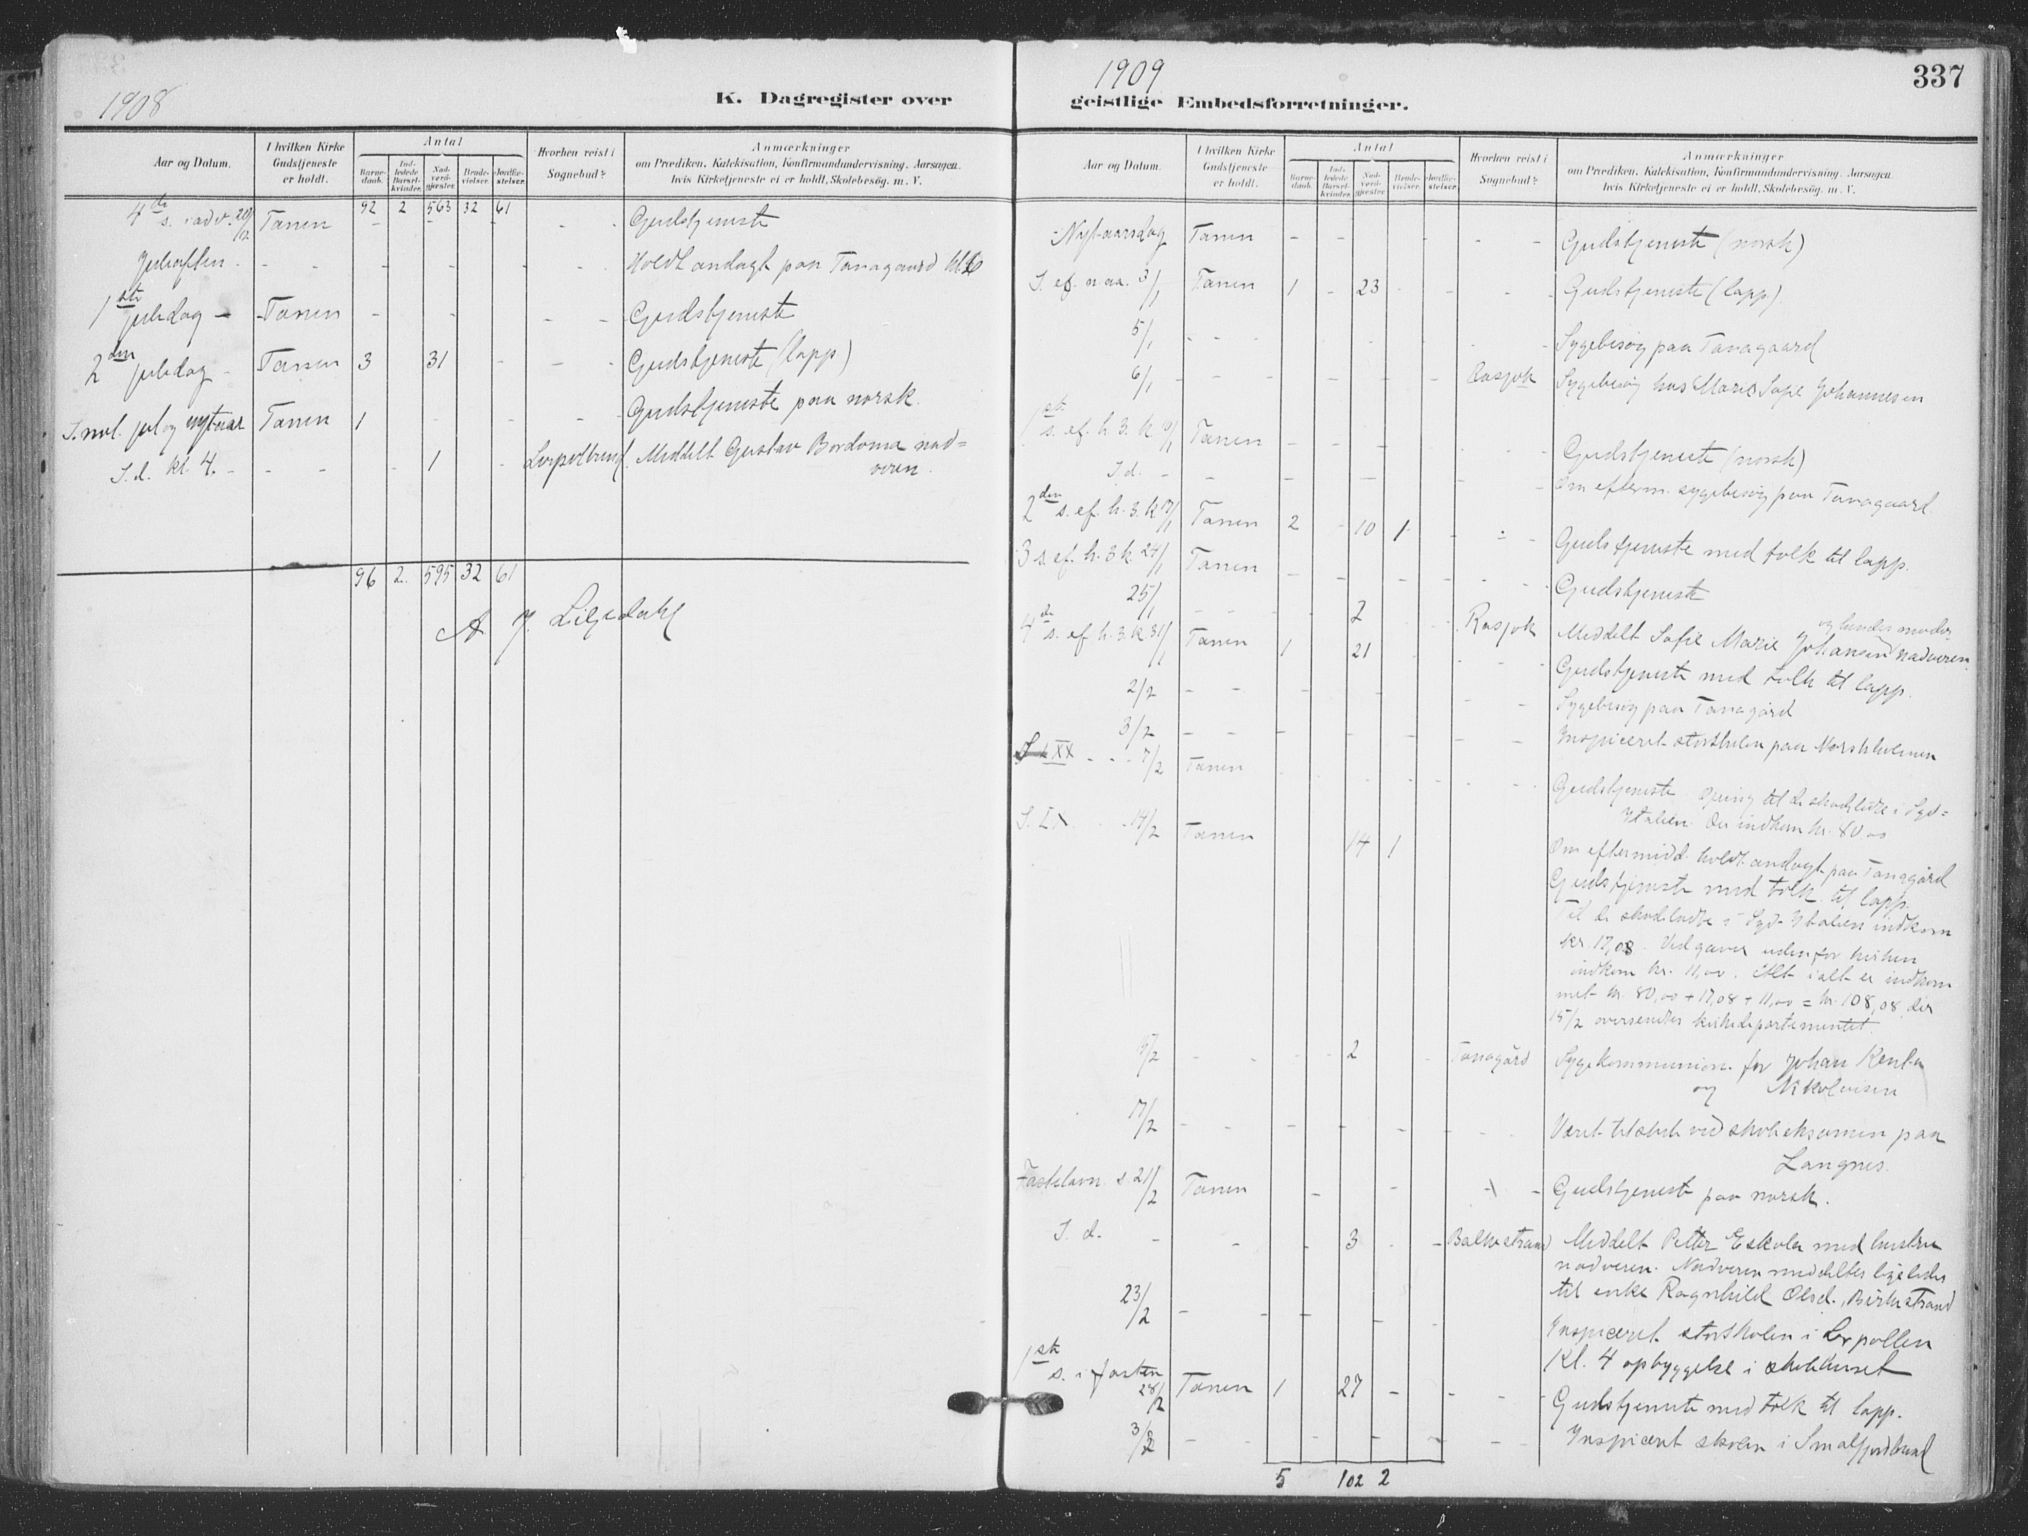 1908
K. Dagregister over
Aar og Datum.
I hvilken Kirke Gudstjeneste er holdt.
Antal
Barnedaab.
Indledede Barselkvinder.
Nadverdgjæster.
Brudevielser.
Jordfæstelser.
Hvorhen reist i Sognebud?
Anmærkninger
om Prædiken, Katekisation, Konfirmandundervisning, Aarsagen,
hvis Kirketjeneste ei er holdt, Skolebesøg. m. V.
92 2 563 32 61
4de s. i adv. 20/12 Tanen - - - - Gudstjeneste
Juleaften - - - - - - Holdt andagt paa Tanagaard kl. 6
1ste juledag - Tanen - - - - - Gudstjeneste
2den juledag - Tanen 3 31 - - - Gudstjeneste (lapp)
S. ml. jul og nytaar Tanen 1 - - - Gudstjeneste paa norsk.
S. d. kl. 4. - - - - 1 - Lerpolbund Meddelt Gustav Bordoma nad=
veren.
96 2. 595 32 61
A. J. Liljedahl
1909
337
geistlige Embedsforretninger.
Aar og Datum.
I hvilken Kirke Gudstjeneste er holdt.
Antal
Barnedaab.
Indledede Barselkvinder.
Nadverdgjæster.
Brudevielser.
Jordfæstelser.
Hvorhen reist i Sognebud?
Anmærkninger
om Prædiken, Katekisation, Konfirmandundervisning, Aarsagen,
hvis Kirketjeneste ei er holdt, Skolebesøg. m. V.
Nytaarsdag Tanen - - - - - - Gudstjeneste (norsk)
S. ef. n. aa. 3/1 Tanen 1 - 23 - - - - Gudstjeneste (lapp).
5/1 - - - - - - - Sygebesøg paa Tanagaard
6/1 - - - - - - - Rasjok Sygebesøg hos Marie Sofie Johannesen
1ste s. ef. h. 3. k. Tanen - - - - - Gudstjeneste (norsk)
S. d. - - - - - - - Om efterm. sygebesøg paa Tanagaard.
2den s. ef. h. 3. k. 17/1 Tanen 2 - 10 1 - - Gudstjeneste med tolk til lapp.
3 s. ef. h. 3 k. 24/1 Tanen - - - - - - Gudstjeneste
25/1 - - - 2 Rasjok Meddelt Sofie Marie Johansen og hendes moder nadveren.
4de s. ef. h. 3. k. 31/1 Tanen 1 21 - - Gudstjeneste med tolk til lapp.
2/2 - - - - - - - Sygebesøg paa Tanagård
3/2 - - - - - - - Inspiceret storskolen paa Norskholmen
S. XX - - - 7/2 Tanen - - - - - Gudstjeneste. Ofring til de skadelidte i Syd=
Italien. Der indkom kr. 80,00
Om eftermidd. holdt andagt paa Tanagård
S. LX - - 14/2 Tanen 14 1 Gudstjeneste med tolk til lapp.
Til de skadelidte i Syd-Italien indkom
kr. 17,08. Ved gaver udenfor kirken
indkom kr. 11,00. Alt i alt er indkom
met kr. 80,00 + 17,08 + 11,00 = kr. 108,08, der
15/2 oversendtes kirkedepartementet.
- - - 2 - Tanagård Sygekommunion for Johan Kenta
og Nikolaisen
17/2 - - - - - - - Været tilstede ved skoleeksamen paa
Langnes.
Fastelavn. s. 21/2 Tanen - - - Gudstjeneste paa norsk.
S. d. - - - 3 - - Balkestrand Meddelt Petter Eskola med hustru
nadveren. Nadveren meddeltes ligeledes
til enke Ragnhild Olsd., Birkestrand
23/2 - - - - - - Inspiceret storskolen i Lerpollen
Kl. 4 opbyggelse i skolehuset
1ste s. i fasten 28/2 Tanen 1 27 - - - Gudstjeneste med tolk til lapp.
3/3 - - - - - - - Inspiceret skolen i Smalfjordbund
5 102 2